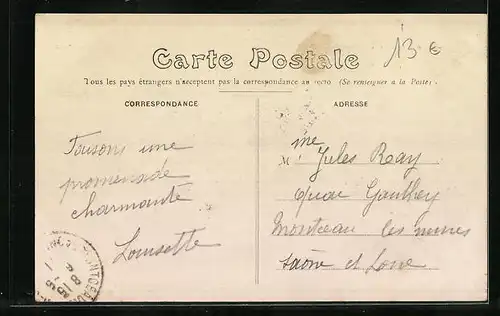 13 €
Carte Postale
Tous les pays étrangers n'acceptent pas la correspondance au recto (Se renseigner à la Poste).
CORRESPONDANCE
ADRESSE
Faisons une
promenade
charmante
Louisette
Mme Jules Reay
Quai Gauthey
Montceau les mines
Saône et Loire
MONTCEAU